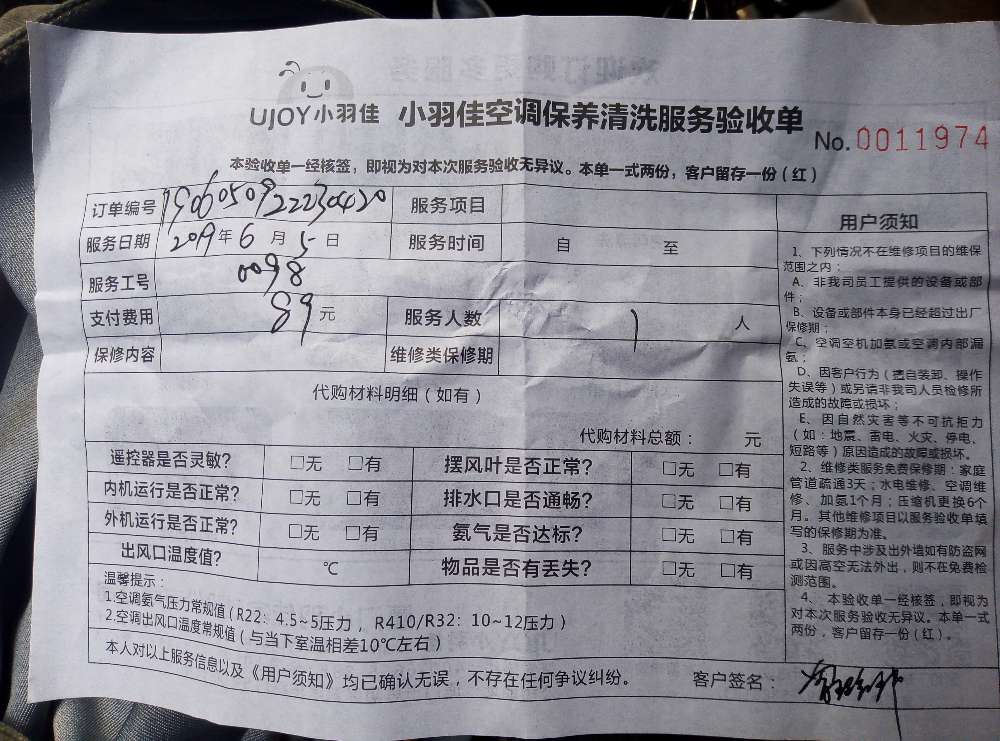 UJOY小羽佳 小羽佳空调保养清洗服务验收单
No.0011974
本验收单一经核签，即视为对本次服务验收无异议。本单一式两份，客户留存一份（红）
订单编号 1906050922230420 服务项目
服务日期 2019年6月5日 服务时间 自 至
服务工号 0098
支付费用 89元 服务人数 1人
保修内容 维修类保修期
代购材料明细（如有）
代购材料总额： 元
遥控器是否灵敏？ □无 □有 摆风叶是否正常？ □无 □有
内机运行是否正常？ □无 □有 排水口是否通畅？ □无 □有
外机运行是否正常？ □无 □有 氨气是否达标？ □无 □有
出风口温度值？ ℃ 物品是否有丢失？ □无 □有
温馨提示：
1.空调氨气压力常规值（R22：4.5~5压力，R410/R32：10~12压力）
2.空调出风口温度常规值（与当下室温相差10℃左右）
本人对以上服务信息以及《用户须知》均已确认无误，不存在任何争议纠纷。 客户签名：
用户须知
1、下列情况不在维修项目的维保
范围之内：
A、非我司员工提供的设备或部
件；
B、设备或部件本身已经超过出厂
保修期；
C、空调空机加氨或空调内部漏
氨；
D、因客户行为（擅自装卸、操作
失误等）或另请非我司人员检修所
造成的故障或损坏；
E、因自然灾害等不可抗拒力
（如：地震、雷电、火灾、停电、
短路等）原因造成的故障或损坏。
2、维修类服务免费保修期：家庭
管道疏通3天；水电维修、空调维
修、加氨1个月；压缩机更换6个
月。其他维修项目以服务验收单填
写的保修期为准。
3、服务中涉及出外墙如有防盗网
或因高空无法外出，则不在免费检
测范围。
4、本验收单一经核签，即视为
对本次服务验收无异议。本单一式
两份，客户留存一份（红）。